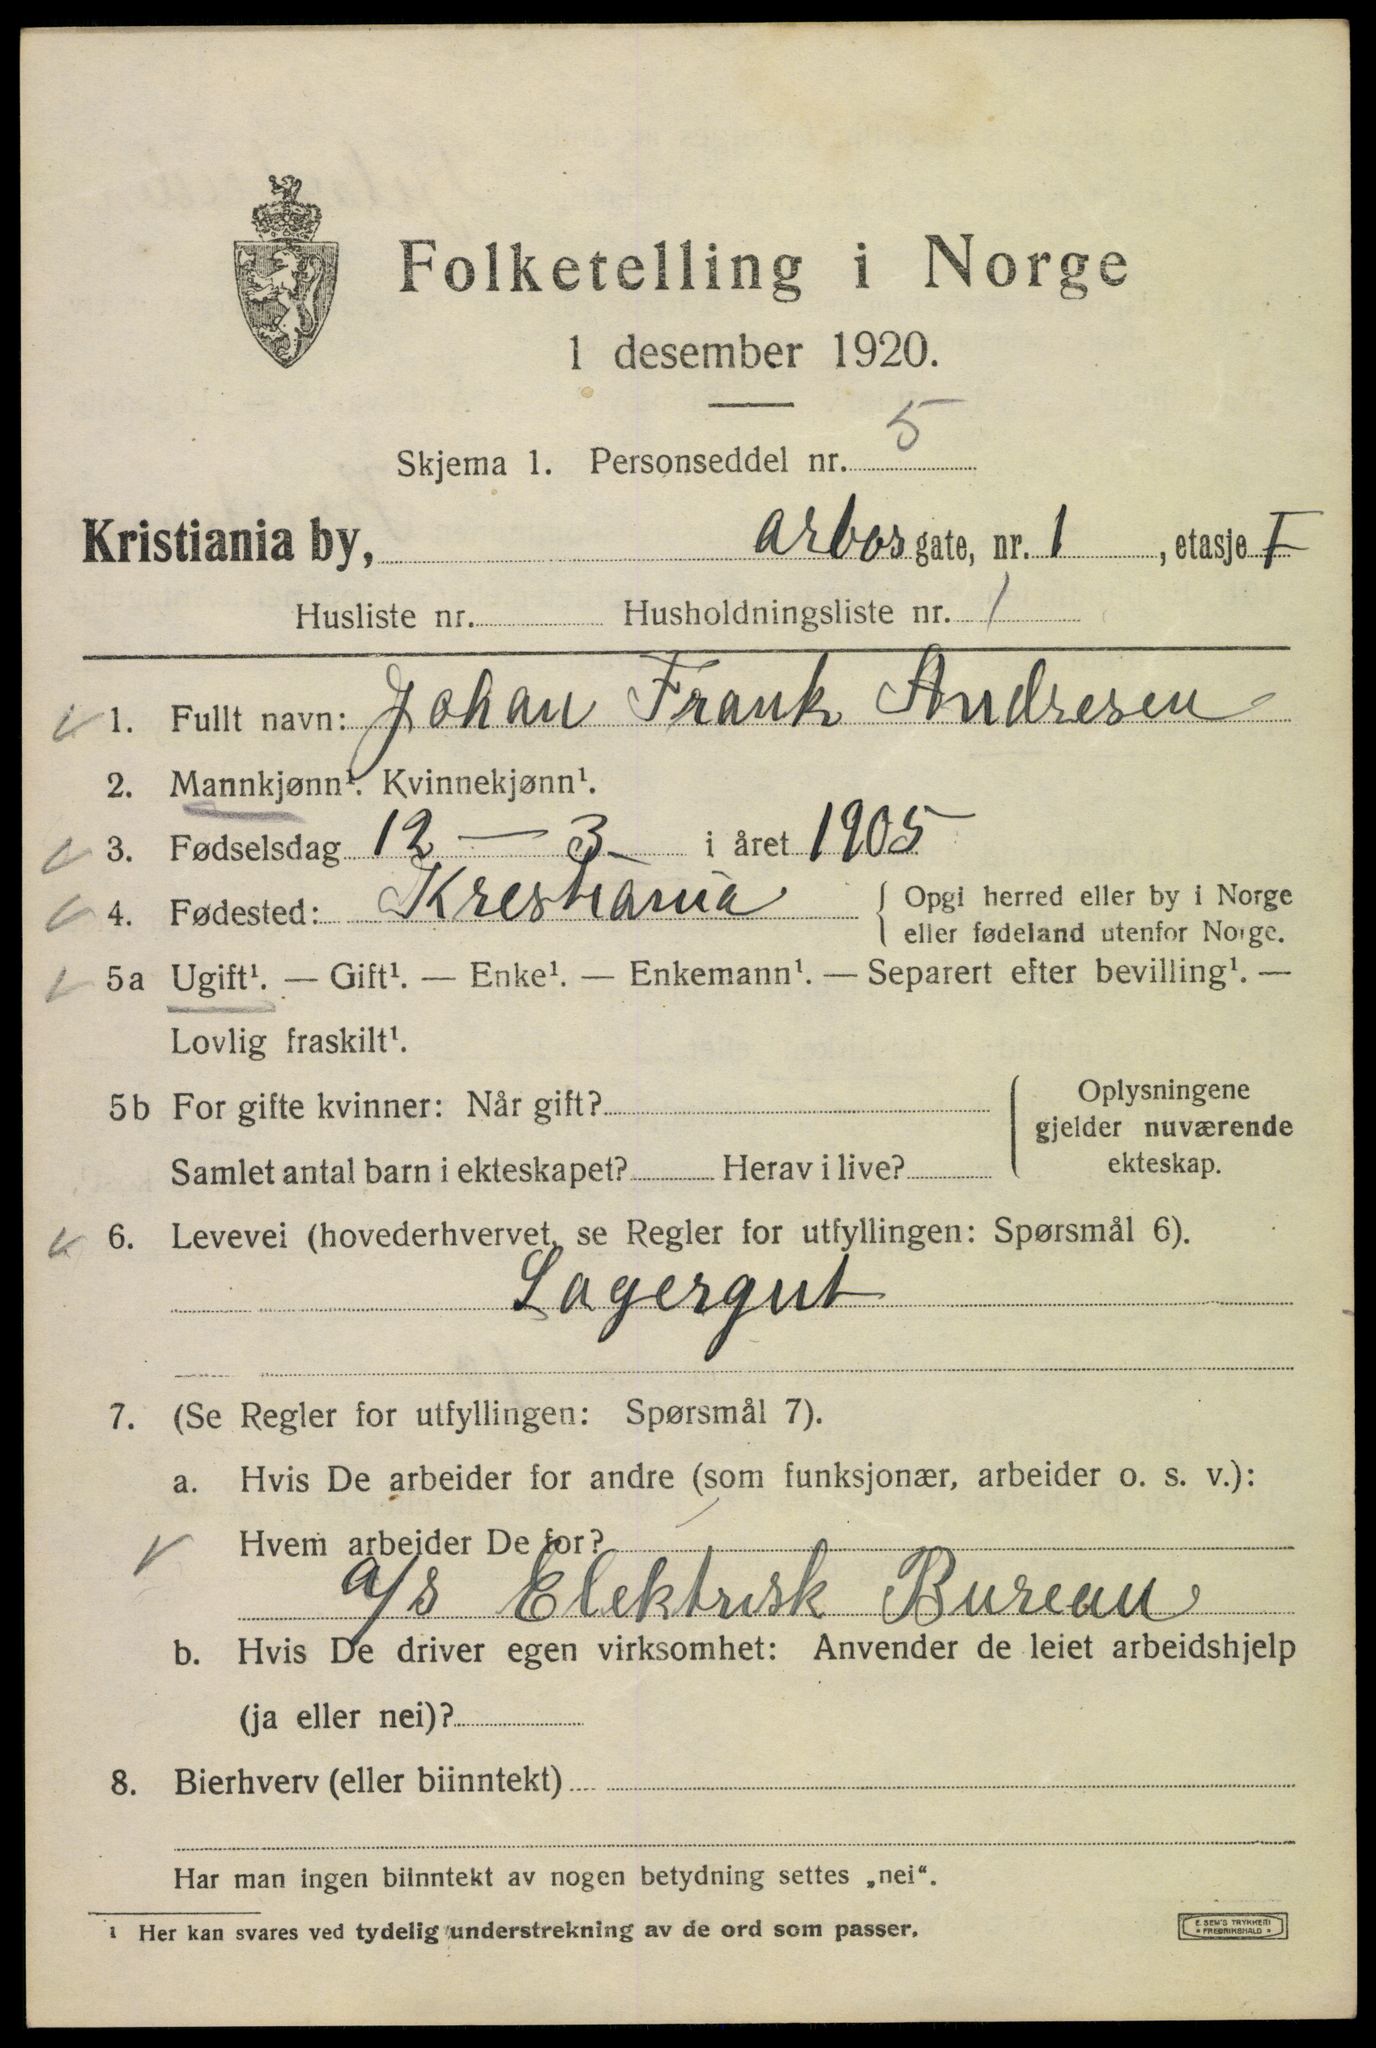 Folketelling i Norge
1 desember 1920.
Skjema 1. Personseddel nr. 5
Kristiania by, Arbos gate, nr. 1, etasje I
Husliste nr. Husholdningsliste nr. 1
1. Fullt navn: Johan Frank Andresen
2. Mannkjønn¹. Kvinnekjønn¹.
3. Fødselsdag 12 — 3 i året 1905
4. Fødested: Krestiania { Opgi herred eller by i Norge
eller fødeland utenfor Norge.
5a Ugift¹. — Gift¹. — Enke¹. — Enkemann¹. — Separert efter bevilling¹. —
Lovlig fraskilt¹.
5b For gifte kvinner: Når gift? { Oplysningene
gjelder nuværende
Samlet antal barn i ekteskapet? Herav i live? ekteskap.
6. Levevei (hovederhvervet, se Regler for utfyllingen: Spørsmål 6).
Lagergut
7. (Se Regler for utfyllingen: Spørsmål 7).
a. Hvis De arbeider for andre (som funksjonær, arbeider o. s. v.):
Hvem arbeider De for?
a/s Elektrisk Bureau
b. Hvis De driver egen virksomhet: Anvender de leiet arbeidshjelp
(ja eller nei)?
8. Bierhverv (eller biinntekt)
Har man ingen biinntekt av nogen betydning settes „nei“.
¹ Her kan svares ved tydelig understrekning av de ord som passer.
E. SEM'S TRYKKERI
* FREDRIKSHALD *